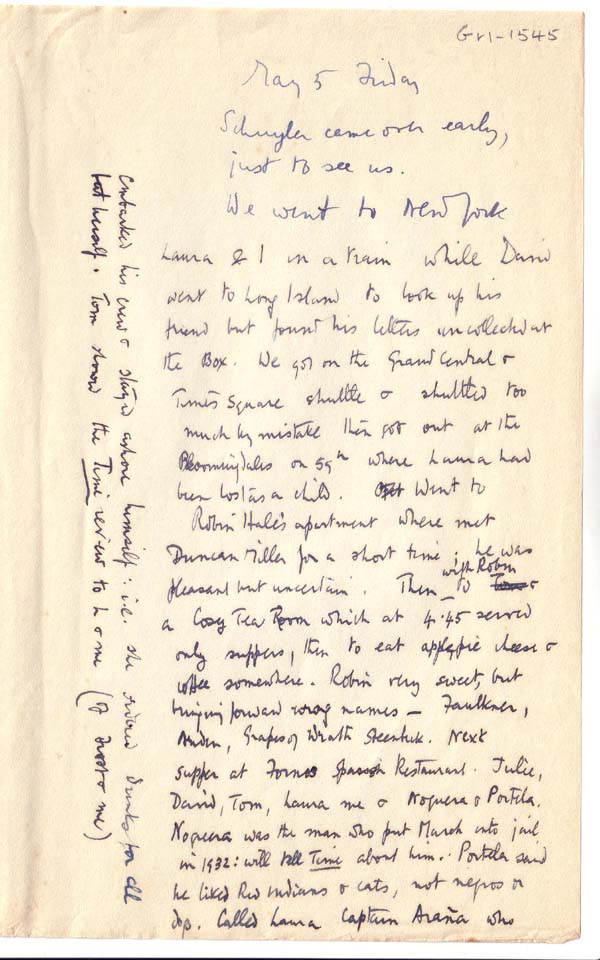 Gr1-1545
May 5 Friday
Schuyler came over early,
just to see us.
We went to New York
Laura & I in a train while David
went to Long Island to look up his
friend but found his letters uncollected at
the Box. We got on the Grand Central &
Times Square shuttle & shuttled too
much by mistake then got out at the
Bloomingdales on 59th where Laura had
been lost as a child. Went to
Robin Hale's apartment where met
Duncan Miller for a short time: he was
pleasant but uncertain. Then with Robin to
a Cosy Tea Room which at 4.45 served
only suppers, then to eat applepie cheese &
coffee somewhere. Robin very sweet, but
bringing forward wrong names – Faulkner,
Auden, Grapes of Wrath Steinbeck. Next
supper at Fornos Spanish Restaurant. Julie,
David, Tom, Laura me & Noguera & Portela.
Noguera was the man who put March into jail
in 1932: will tell Time about him. Portela said
he liked Red Indians & cats, not negros or
dogs. Called Laura Captain Araña who
embarked his crew & stayed ashore himself: i.e. she ordered drinks for all
but herself. Tom showed the Time review to L & me (of Frost & me)